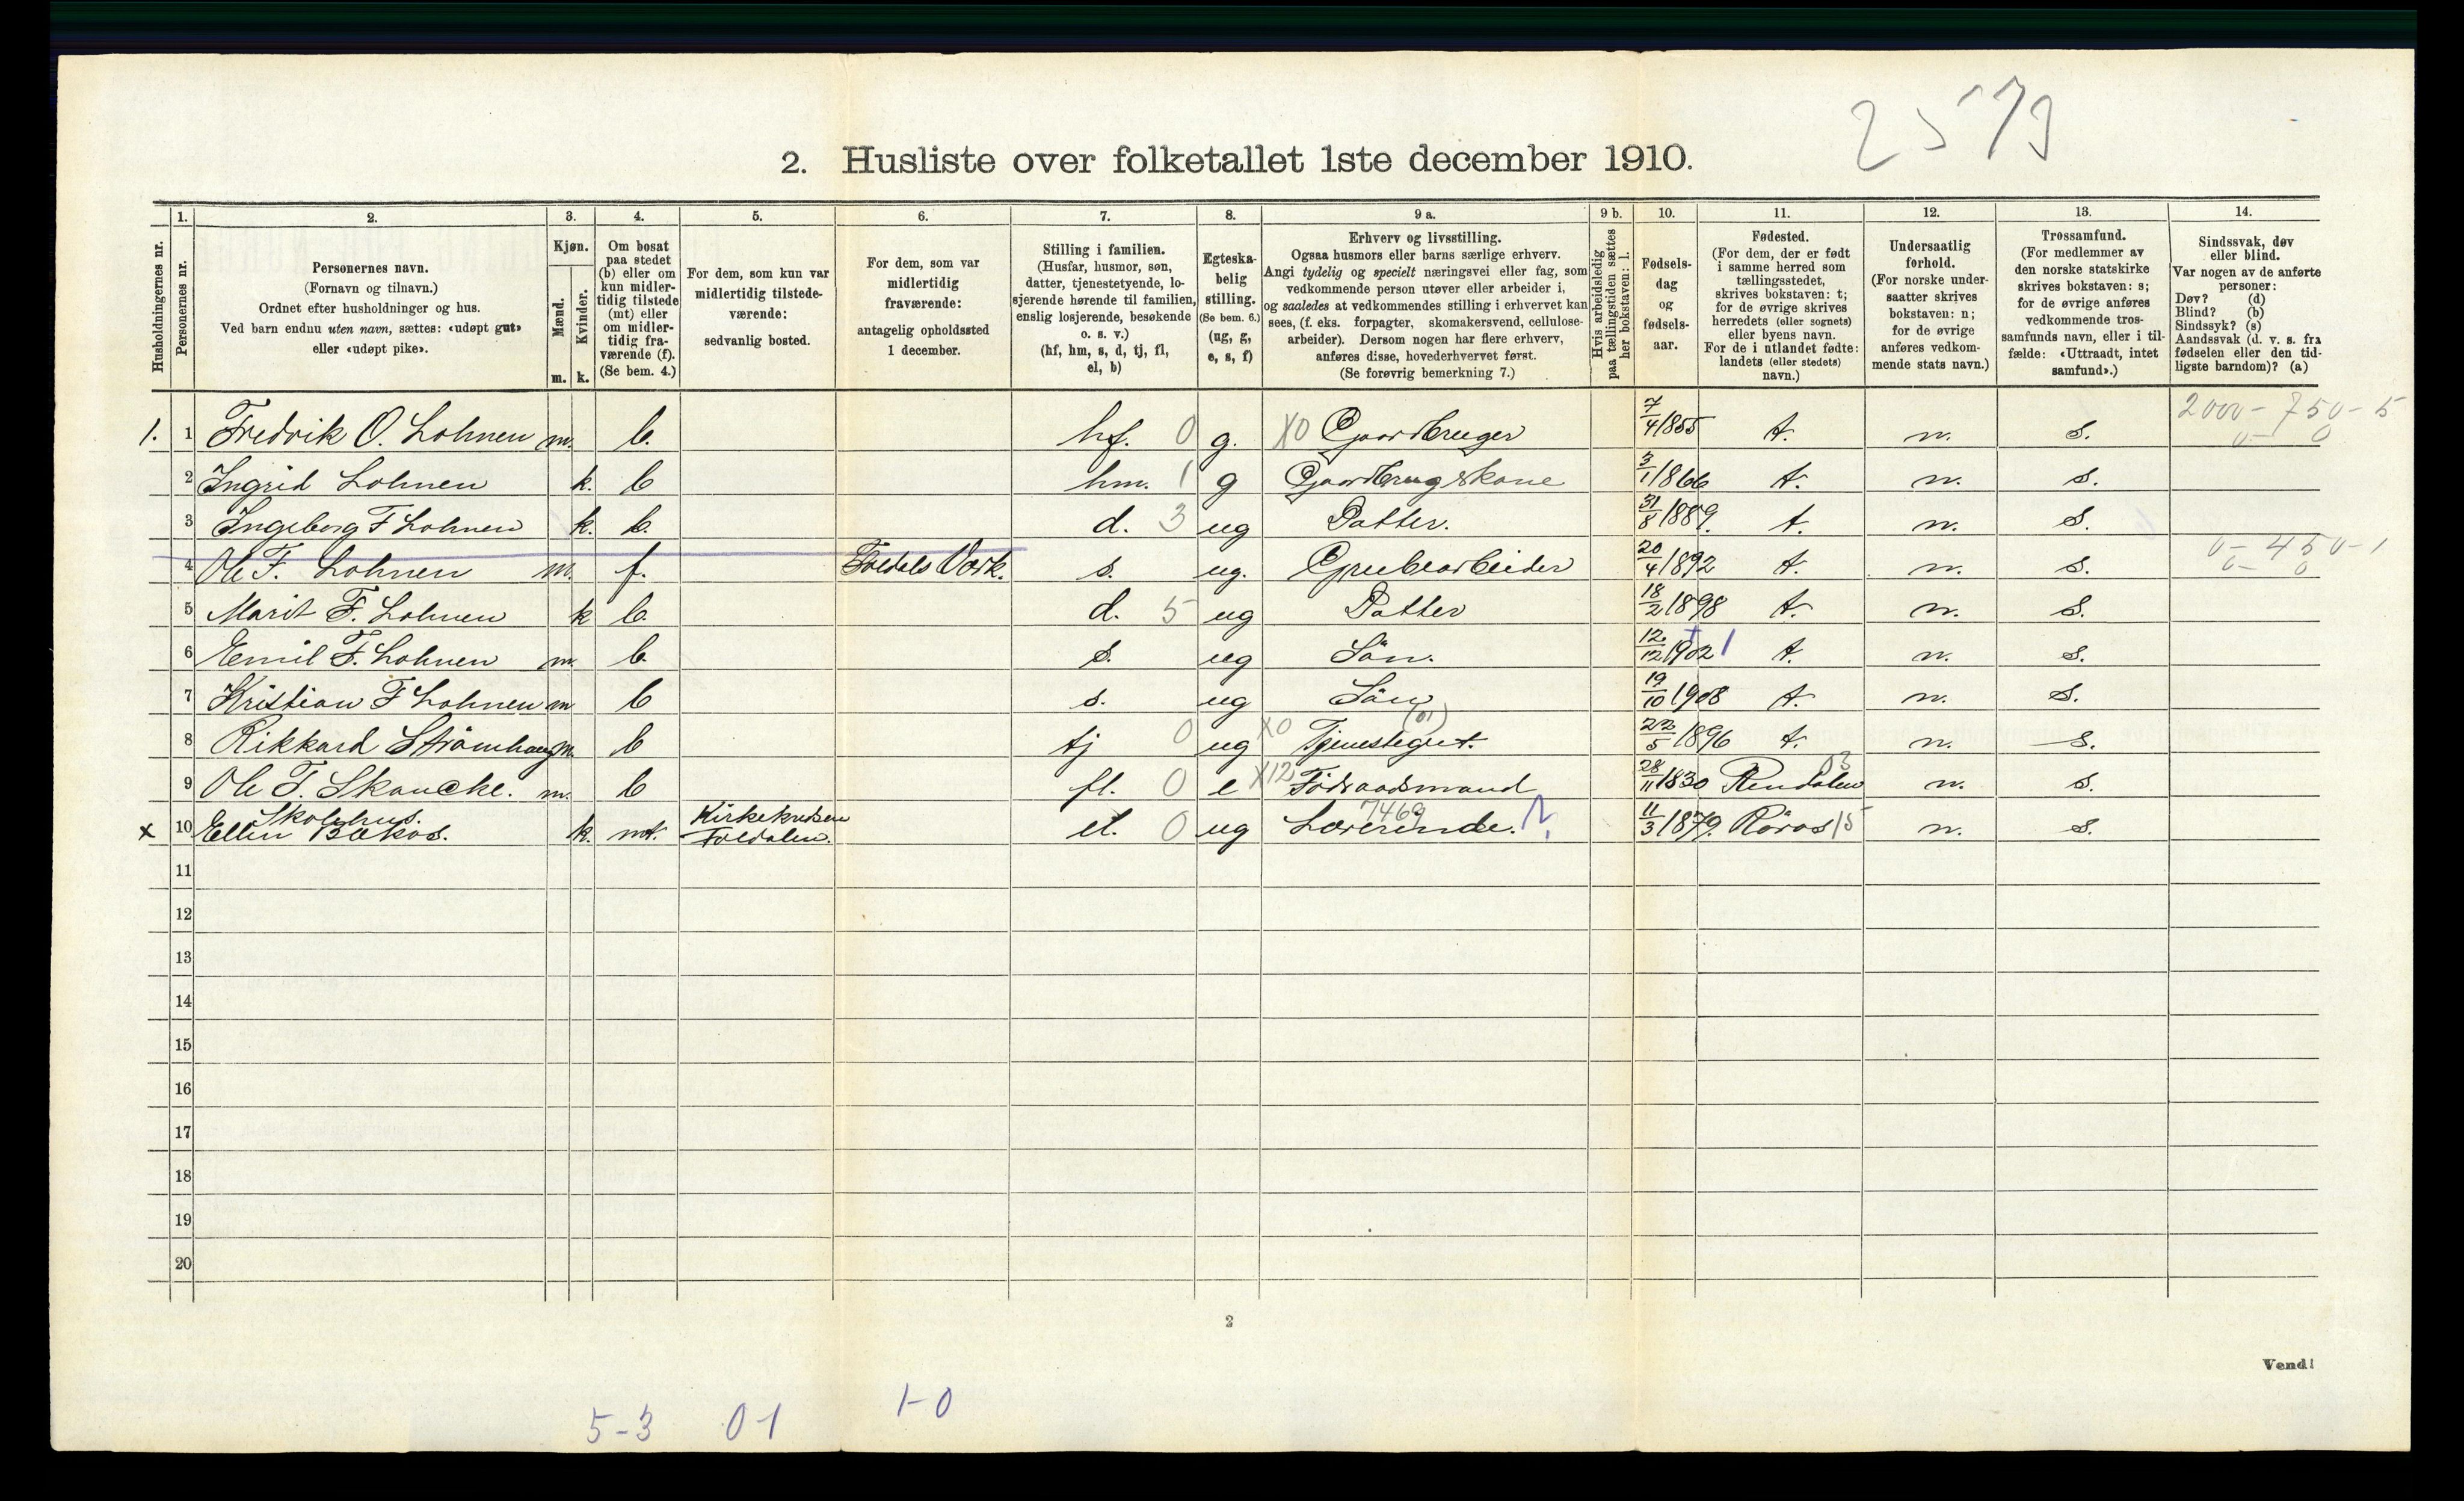 2579
2. Husliste over folketallet 1ste december 1910.
Husholdningernes nr.
1.
Personernes nr.
2.
Personernes navn.
(Fornavn og tilnavn.)
Ordnet efter husholdninger og hus.
Ved barn endnu uten navn, sættes: «udøpt gut»
eller «udøpt pike».
3.
Kjøn.
Mænd.
Kvinder.
m. k.
4.
Om bosat
paa stedet
(b) eller om
kun midler-
tidig tilstede
(mt) eller
om midler-
tidig fra-
værende (f).
(Se bem. 4.)
5.
For dem, som kun var
midlertidig tilstede-
værende:
sedvanlig bosted.
6.
For dem, som var
midlertidig
fraværende:
antagelig opholdssted
1 december.
7.
Stilling i familien.
(Husfar, husmor, søn,
datter, tjenestetyende, lo-
sjerende hørende til familien,
enslig losjerende, besøkende
o. s. v.)
(hf, hm, s, d, tj, fl,
el, b)
8.
Egteska-
belig
stilling.
(Se bem. 6.)
(ug, g,
e, s, f)
9 a.
Erhverv og livsstilling.
Ogsaa husmors eller barns særlige erhverv.
Angi tydelig og specielt næringsvei eller fag, som
vedkommende person utøver eller arbeider i,
og saaledes at vedkommendes stilling i erhvervet kan
sees, (f. eks. forpagter, skomakersvend, cellulose-
arbeider). Dersom nogen har flere erhverv,
anføres disse, hovederhvervet først.
(Se forøvrig bemerkning 7.)
9 b.
Hvis arbeidsledig
paa tællingstiden sættes
her bokstaven: l.
10.
Fødsels-
dag
og
fødsels-
aar.
11.
Fødested.
(For dem, der er født
i samme herred som
tællingsstedet,
skrives bokstaven: t;
for de øvrige skrives
herredets (eller sognets)
eller byens navn.
For de i utlandet fødte:
landets (eller stedets)
navn.)
12.
Undersaatlig
forhold.
(For norske under-
saatter skrives
bokstaven: n;
for de øvrige
anføres vedkom-
mende stats navn.)
13.
Trossamfund.
(For medlemmer av
den norske statskirke
skrives bokstaven: s;
for de øvrige anføres
vedkommende tros-
samfunds navn, eller i til-
fælde: «Uttraadt, intet
samfund».)
14.
Sindssvak, døv
eller blind.
Var nogen av de anførte
personer:
Døv? (d)
Blind? (b)
Sindssyk? (s)
Aandssvak (d. v. s. fra
fødselen eller den tid-
ligste barndom)? (a)
1. 1 Fredrik O. Lohnen m. b. hf. 0 g. X0 Gaardbruger 7/4 1855 t. n. s. 2000-750-5 0- 0
2 Ingrid Lohnen k. b hm. 1 g Gaardbrugskone 3/1 1866 t. n. s.
3 Ingeborg F Lohnen k. b. d. 3 ug Datter. 31/8 1889. t. n. s.
4 Ole F. Lohnen m. f. Foldals Værk. s. ug. Grubearbeider 20/4 1892 t. n. s. 0-450-1 0- 0
5 Marit F. Lohnen k b. d. 5 ug Datter 18/2 1898 t. n. s.
6 Emil F. Lohnen m. b. s. ug Sön. 12/12 1902 1 t. n. s.
7 Kristian F Lohnen m b s. ug Sön 19/10 1908 t. n. s.
8 Rikkard Strömhaug m. b tj 0 ug X0 Tjenestegut. (01) 22/5 1896 t. n. s.
9 Ole T. Skancke. m. b fl. 0 e X12 Födraadsmand 28/11 1830 Rendalen 03 n. s.
Skolehus.
x 10 Ellin Bækos. k. mt. Kirkekredsen Foldalen. el. 0 ug Lærerinde. 7469 11/3 1879. Röros 15 n. s.
11
12
13
14
15
16
17
18
19
20
2
Vend!
5-3 0-1 1-0